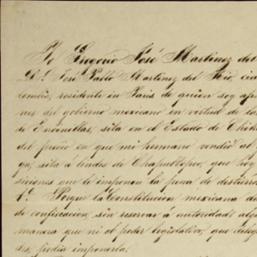 Yo Gregorio José Martinez del
D. José Pablo Martinez del Rio, ciu
lombia, residente en Paris de quien soy apo
nes del gobierno mexicano en virtud de las
de Encinillas, sita en el Estado de Chih
del precio en que mi hermano vendió al g
ga, sita á lindes de Chapultepec, que hoy
siciones en le imponen la pena de destierro
1ª Porque la Constitucion mexicana de
de confiscacion, sin reservar á autoridad alg
manera que ni al poder legislativo, que desig
des, podia imponerla.